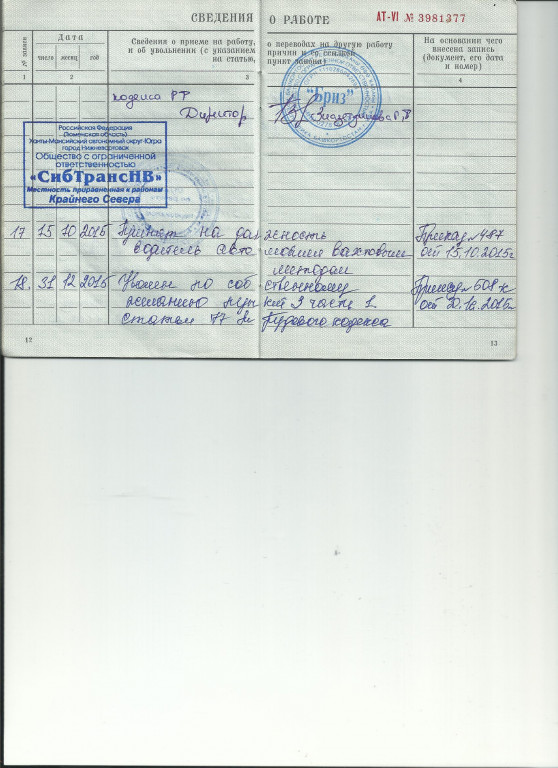 СВЕДЕНИЯ О РАБОТЕ
АТ-VI № 3981377
№ записи
Дата
число месяц год
Сведения о приеме на работу, о переводах на другую работу
и об увольнении (с указанием причин и со ссылкой
на статью, пункт закона)
На основании чего
внесена запись
(документ, его дата
и номер)
1 2 3 4
кодекса РФ
Директор
"Бриз"
Российская Федерация
(Тюменская область)
Ханты-Мансийский автономный округ-Югра
город Нижневартовск
Общество с ограниченной
ответственностью
«СибТрансНВ»
Местность приравненная к районам
Крайнего Севера
17 15 10 2015 Принят на должность Приказ 487
водитель автомобиля вахтовым от 15.10.2015г
методом
18. 31 12 2015 Уволен по собственному Приказ 508 к
желанию пункт 3 часть 1
статьи 77 Трудового кодекса
12
13